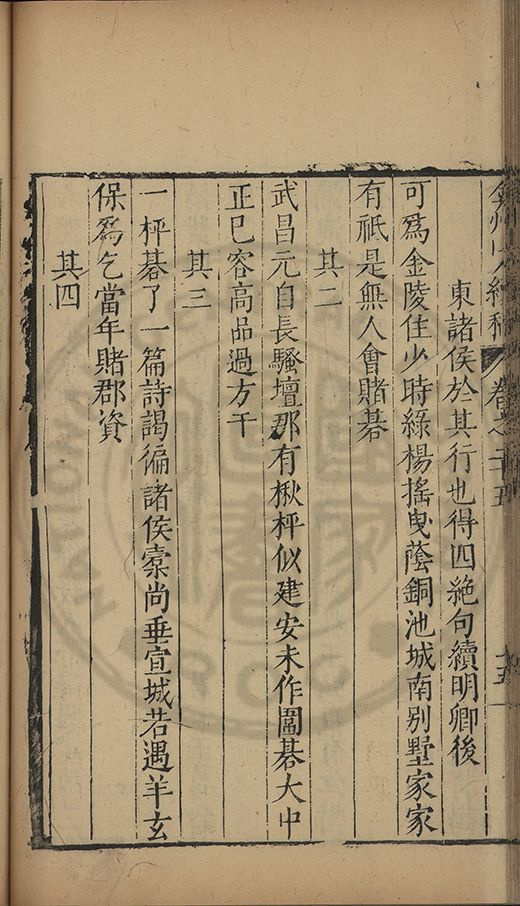 弇州山人續稿 卷之二十五 十五
東諸侯於其行也得四絶句續明卿後
可爲金陵住少時綠楊搖曳蔭銅池城南別墅家家
有祇是無人會賭棊
其二
武昌元自長騷壇那有楸枰似建安未作圍棊大中
正已容高品過方干
其三
一枰棊了一篇詩謁徧諸侯橐尚垂宣城若遇羊玄
保爲乞當年賭郡資
其四